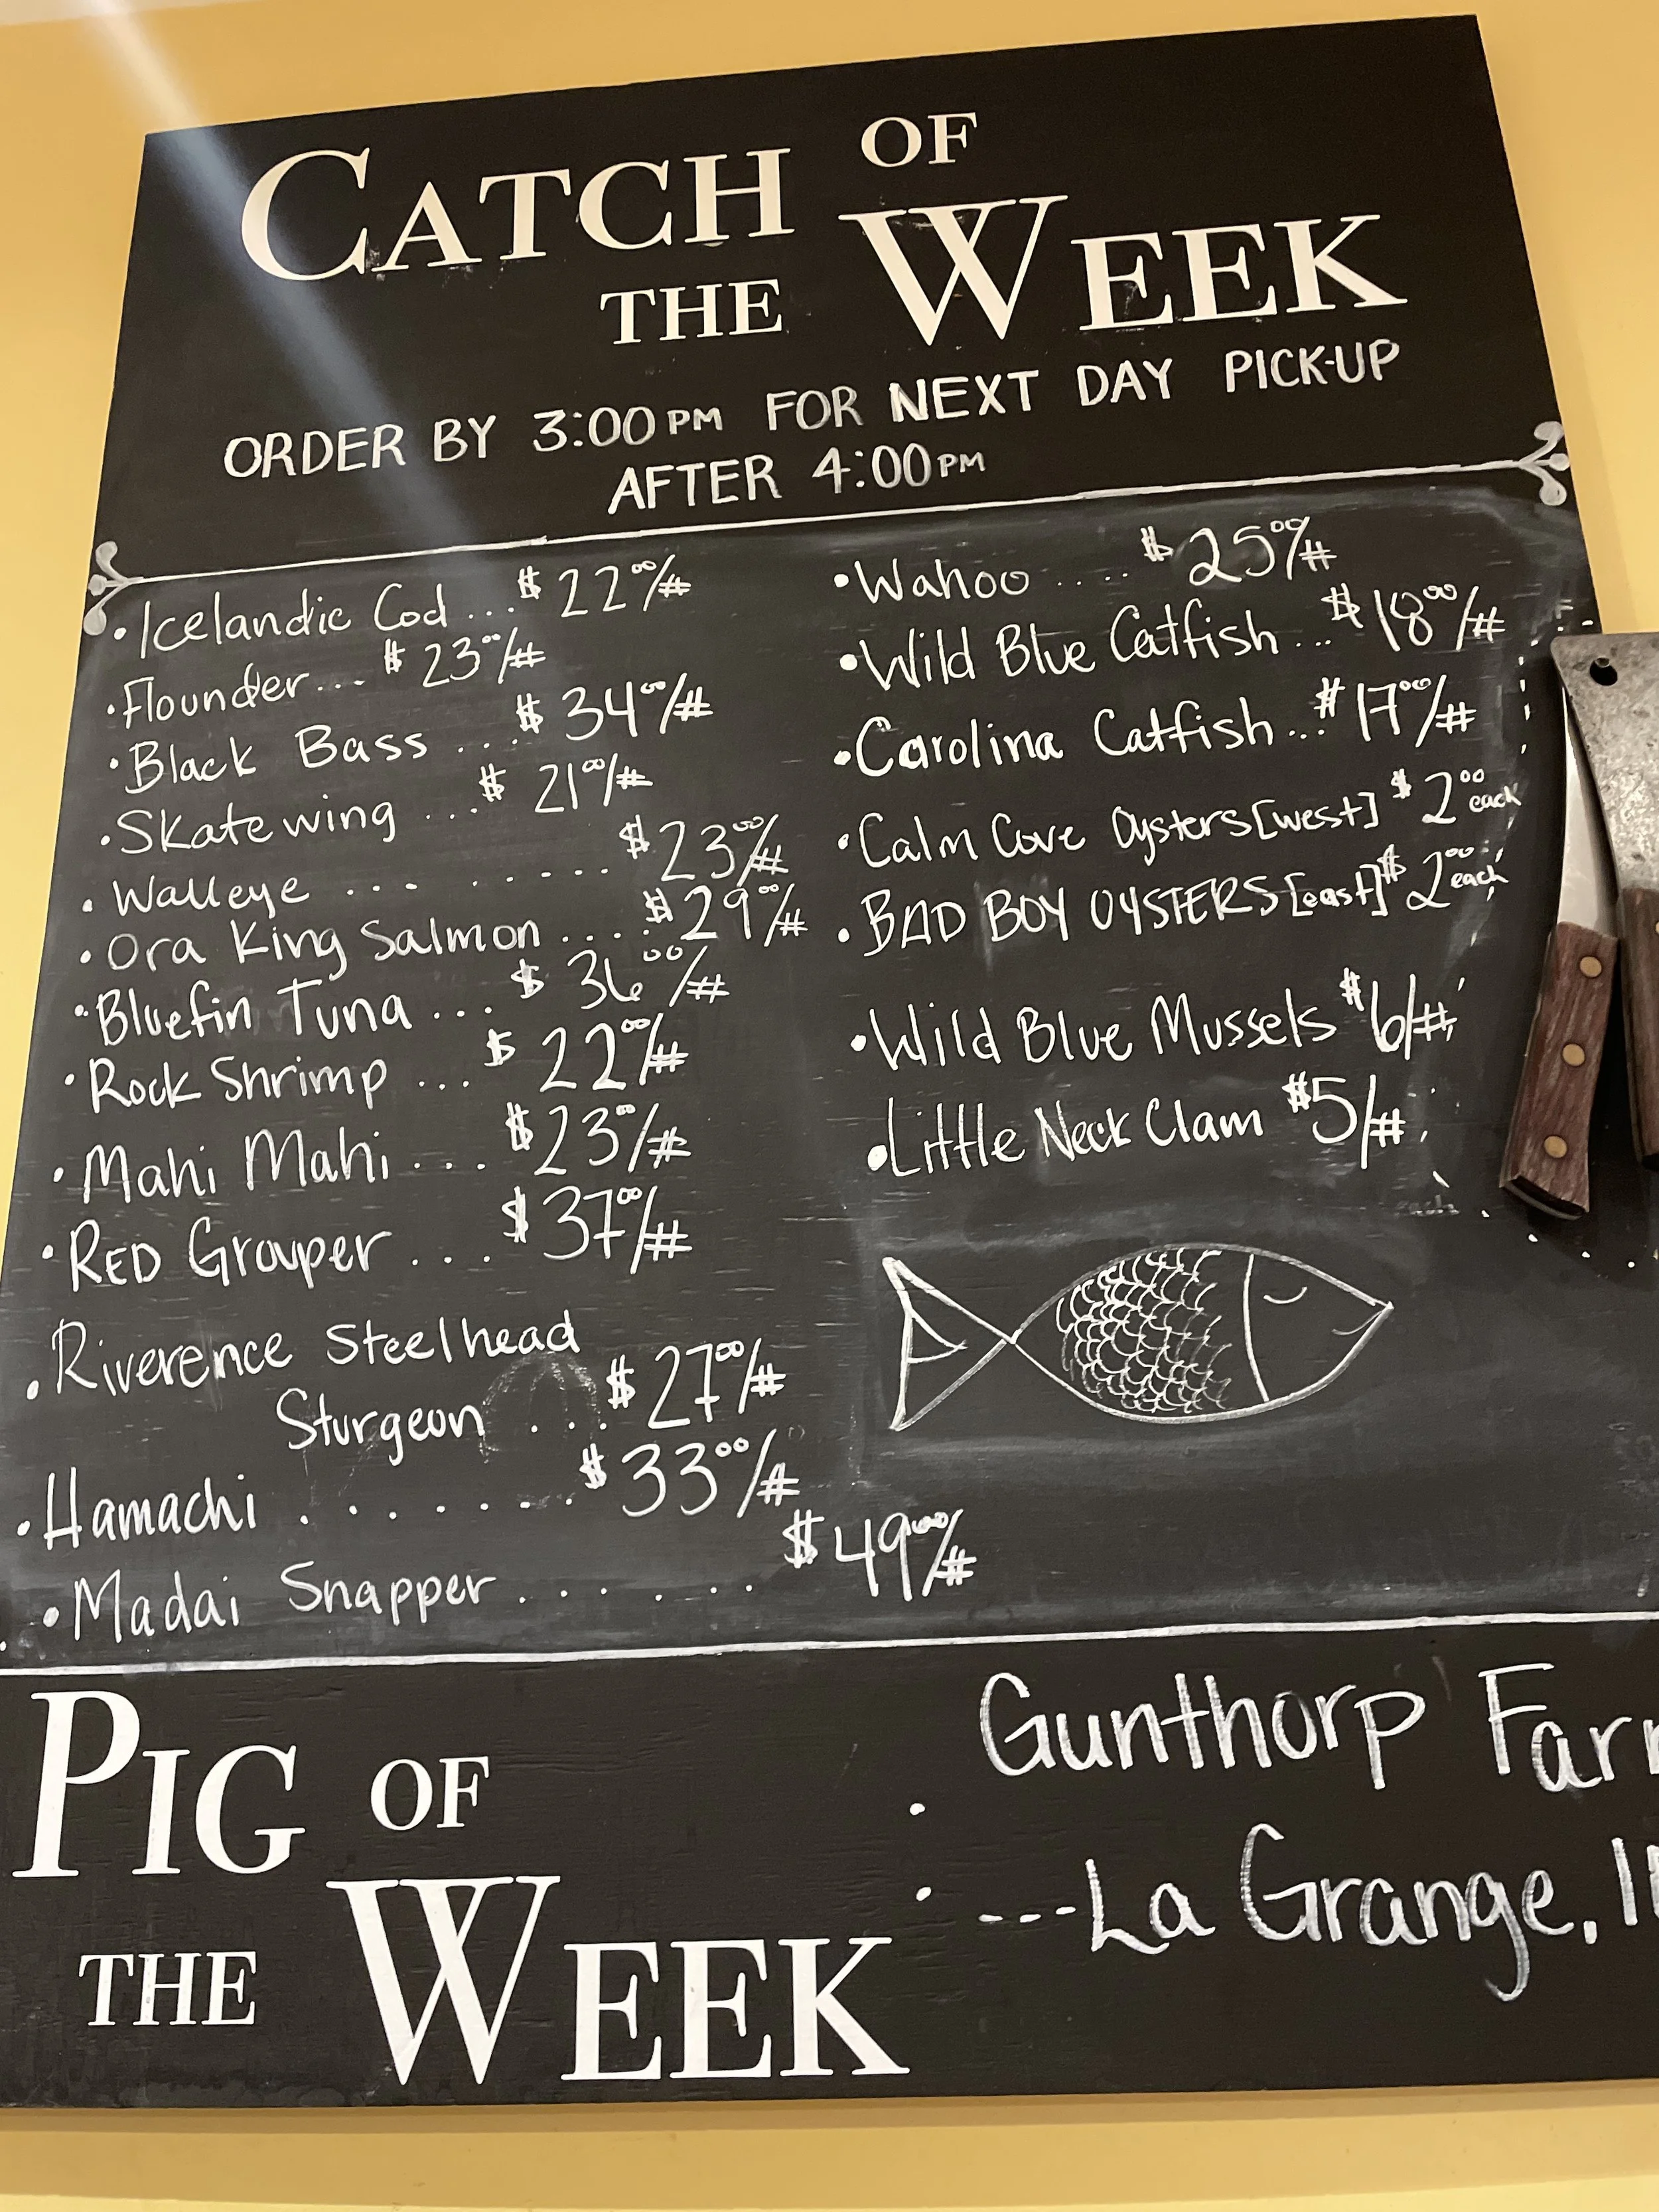 CATCH OF
THE WEEK
ORDER BY 3:00 PM FOR NEXT DAY PICK-UP
AFTER 4:00 PM
• Icelandic Cod ... $ 22⁰⁰/#
• Flounder... $ 23⁰⁰/#
• Black Bass ... $ 34⁰⁰/#
• Skate wing ... $ 21⁰⁰/#
• Walleye ... ..... $ 23⁰⁰/#
• Ora King Salmon .... $ 29⁰⁰/#
• Bluefin Tuna ... $ 36⁰⁰/#
• Rock Shrimp ... $ 22⁰⁰/#
• Mahi Mahi ... $ 23⁰⁰/#
• RED Grouper ... $ 37⁰⁰/#
• Riverence Steelhead
Sturgeon ... $ 27⁰⁰/#
• Hamachi ....... $ 33⁰⁰/#
• Madai Snapper ...... $ 49⁰⁰/#
• Wahoo .... $ 25⁰⁰/#
• Wild Blue Catfish ... $ 18⁰⁰/#
• Carolina Catfish ... $ 17⁰⁰/#
• Calm Cove Oysters [west] $ 2⁰⁰ each
• BAD BOY OYSTERS [east] $ 2⁰⁰ each
• Wild Blue Mussels $6/#
• Little Neck Clam $5/#
PIG OF
THE WEEK
Gunthorp Far
---La Grange, I